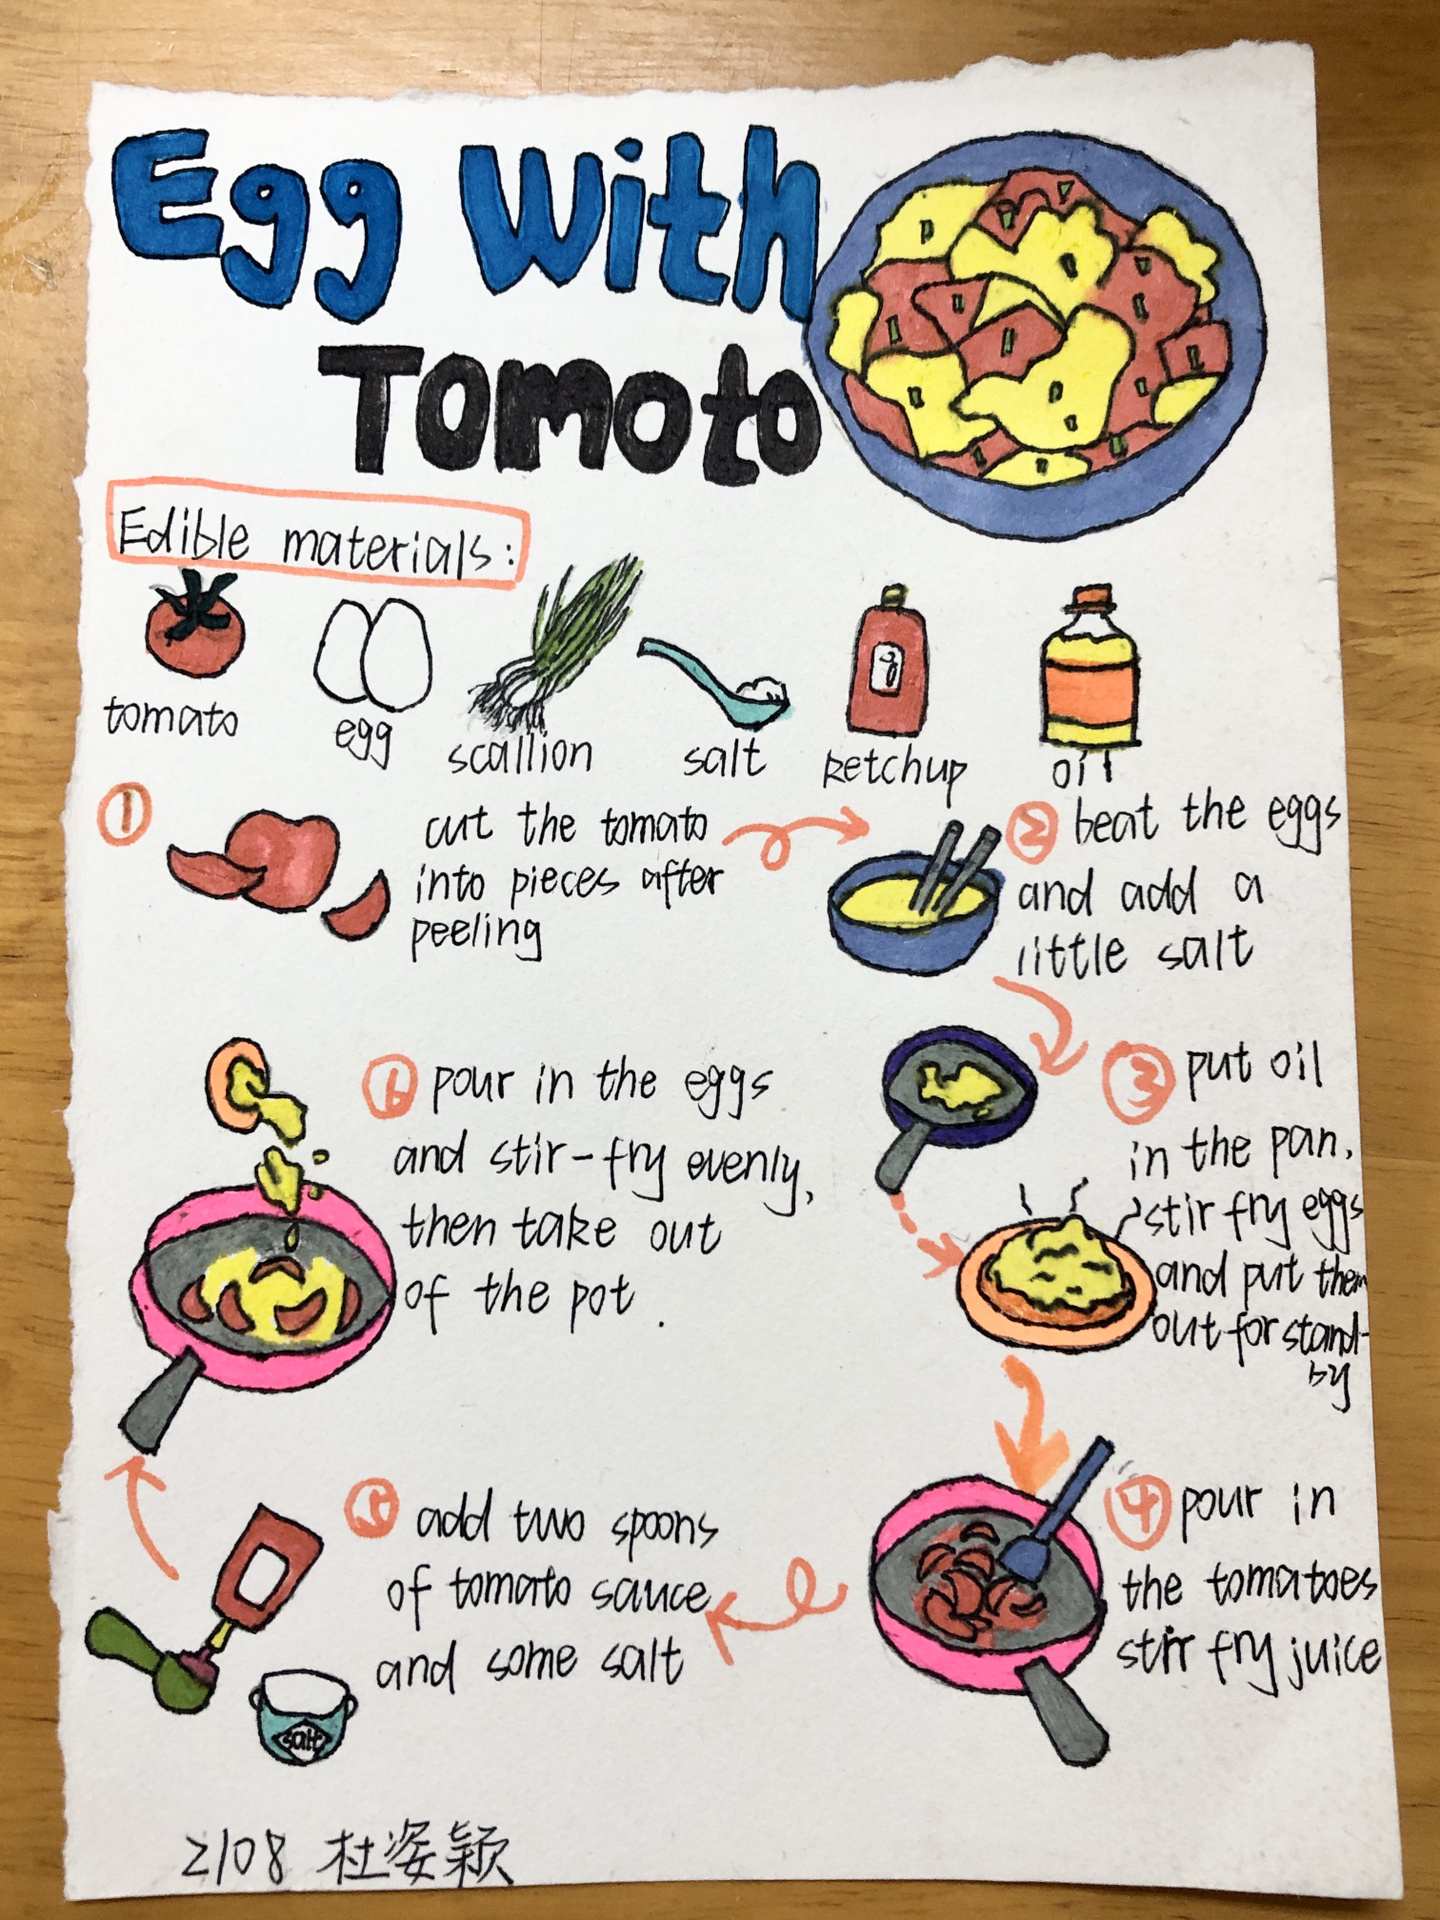 Egg With
Tomoto
Edible materials:
tomato
egg
scallion
salt
ketchup
oil
1
cut the tomato
into pieces after
peeling
2 beat the eggs
and add a
little salt
3 put oil
in the pan,
stir fry eggs
and put them
out for stand-
by
4 pour in
the tomatoes
stir fry juice
5 add two spoons
of tomato sauce
and some salt
salt
6 pour in the eggs
and stir-fry evenly,
then take out
of the pot.
2108 杜姿颖